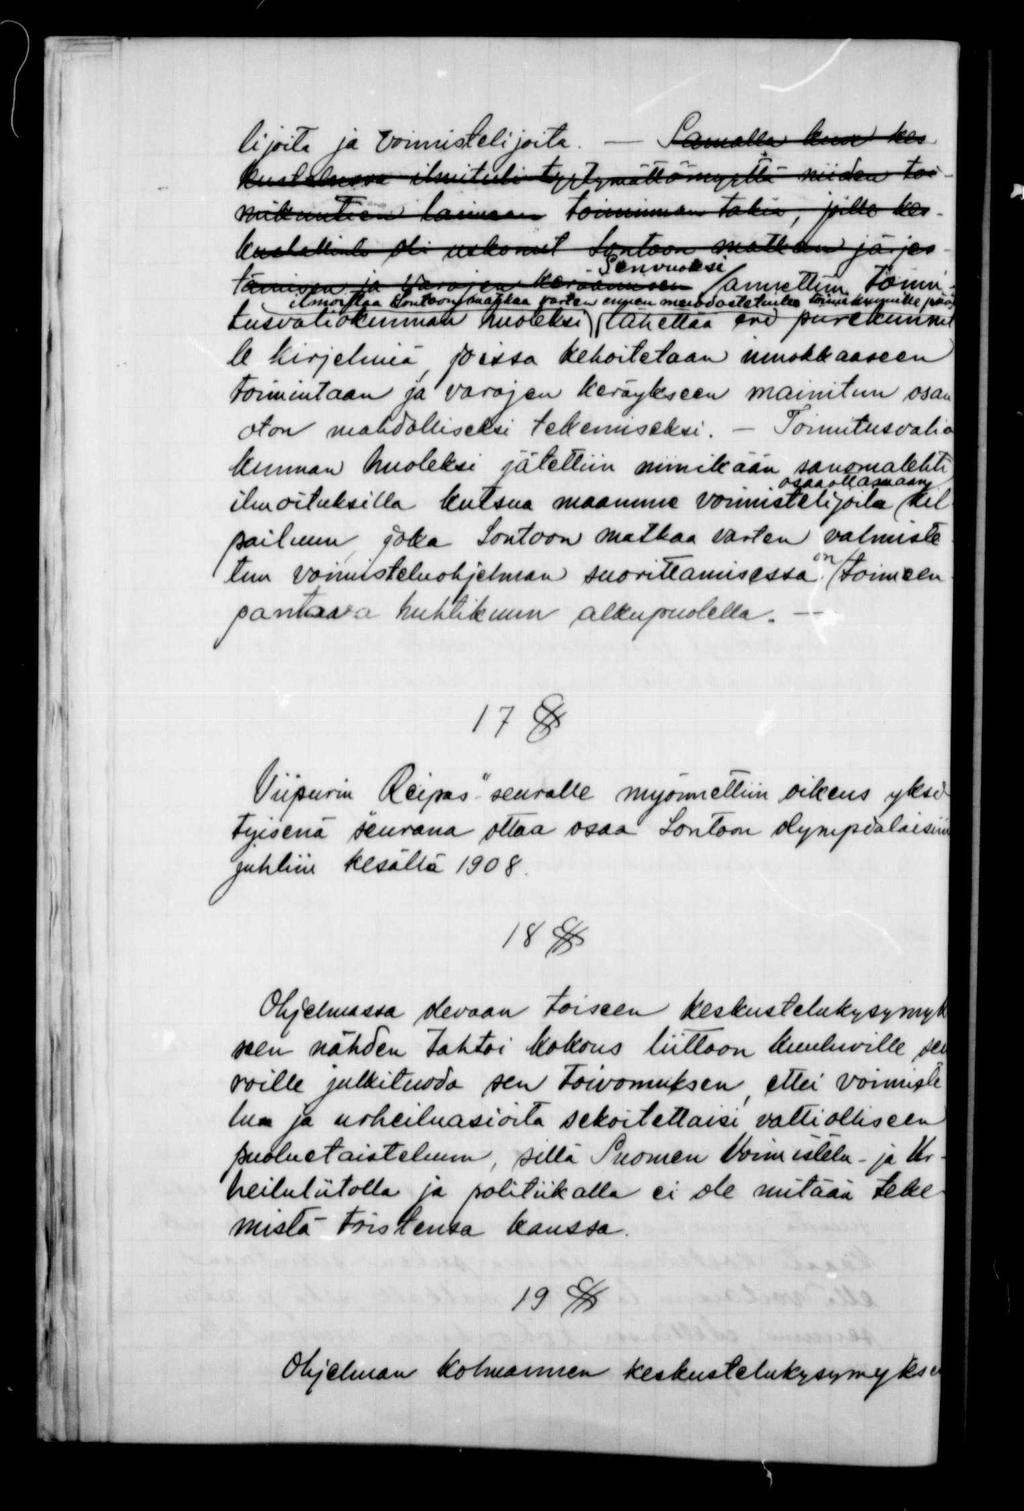 lijoita ja voimistelijoita. — Samalla kun kes-
kustelussa ilmituli tyytymättömyyttä niiden toi-
mikuntien laimean toiminnan takia, jille kes-
kushallinto oli uskonut Lontoon matkan järjes-
tämisen ja varojen keräämisen Senvuoksi annettiin toimi-
ilmoittaa Lontoon matkaa varten
tusvaliokunnan huoleksi lähettää eri piirikunnil
le kirjelmiä, joissa kehoitetaan innokkaaseen
toimintaan ja varojen keräykseen mainitun osan
oton mahdolliseksi tekemiseksi. — Toimitusvalio
kunnan huoleksi jätettiin niinikään sanomalehti
osaaottamaan
ilmoituksilla kutsua maamme voimistelijoita kil
pailuun, joka Lontoon matkaa varten valmiste
tun voimisteluohjelman suorittamisessa on toimeen
pantava huhtikuun alkupuolella. —
17 §
Viipurin Reipas" seuralle myönnettiin oikeus yksi
tyisenä seurana ottaa osaa Lontoon olympialaisiin
juhliin kesällä 1908.
18 §
Ohjelmassa olevaan toiseen keskustelukysymyk
seen nähden tahtoi kokous liittoon kuuluville seu
roille julkituoda sen toivomuksen, ettei voimiste
lua ja urheiluasioita sekoitettaisi valtiolliseen
puoluetaisteluun, sillä Suomen Voimistelu- ja Ur-
heiluliitolla ja politiikalla ei ole mitään teke
mistä toistensa kanssa.
19 §
Ohjelman kolmannen keskustelukysymyksen